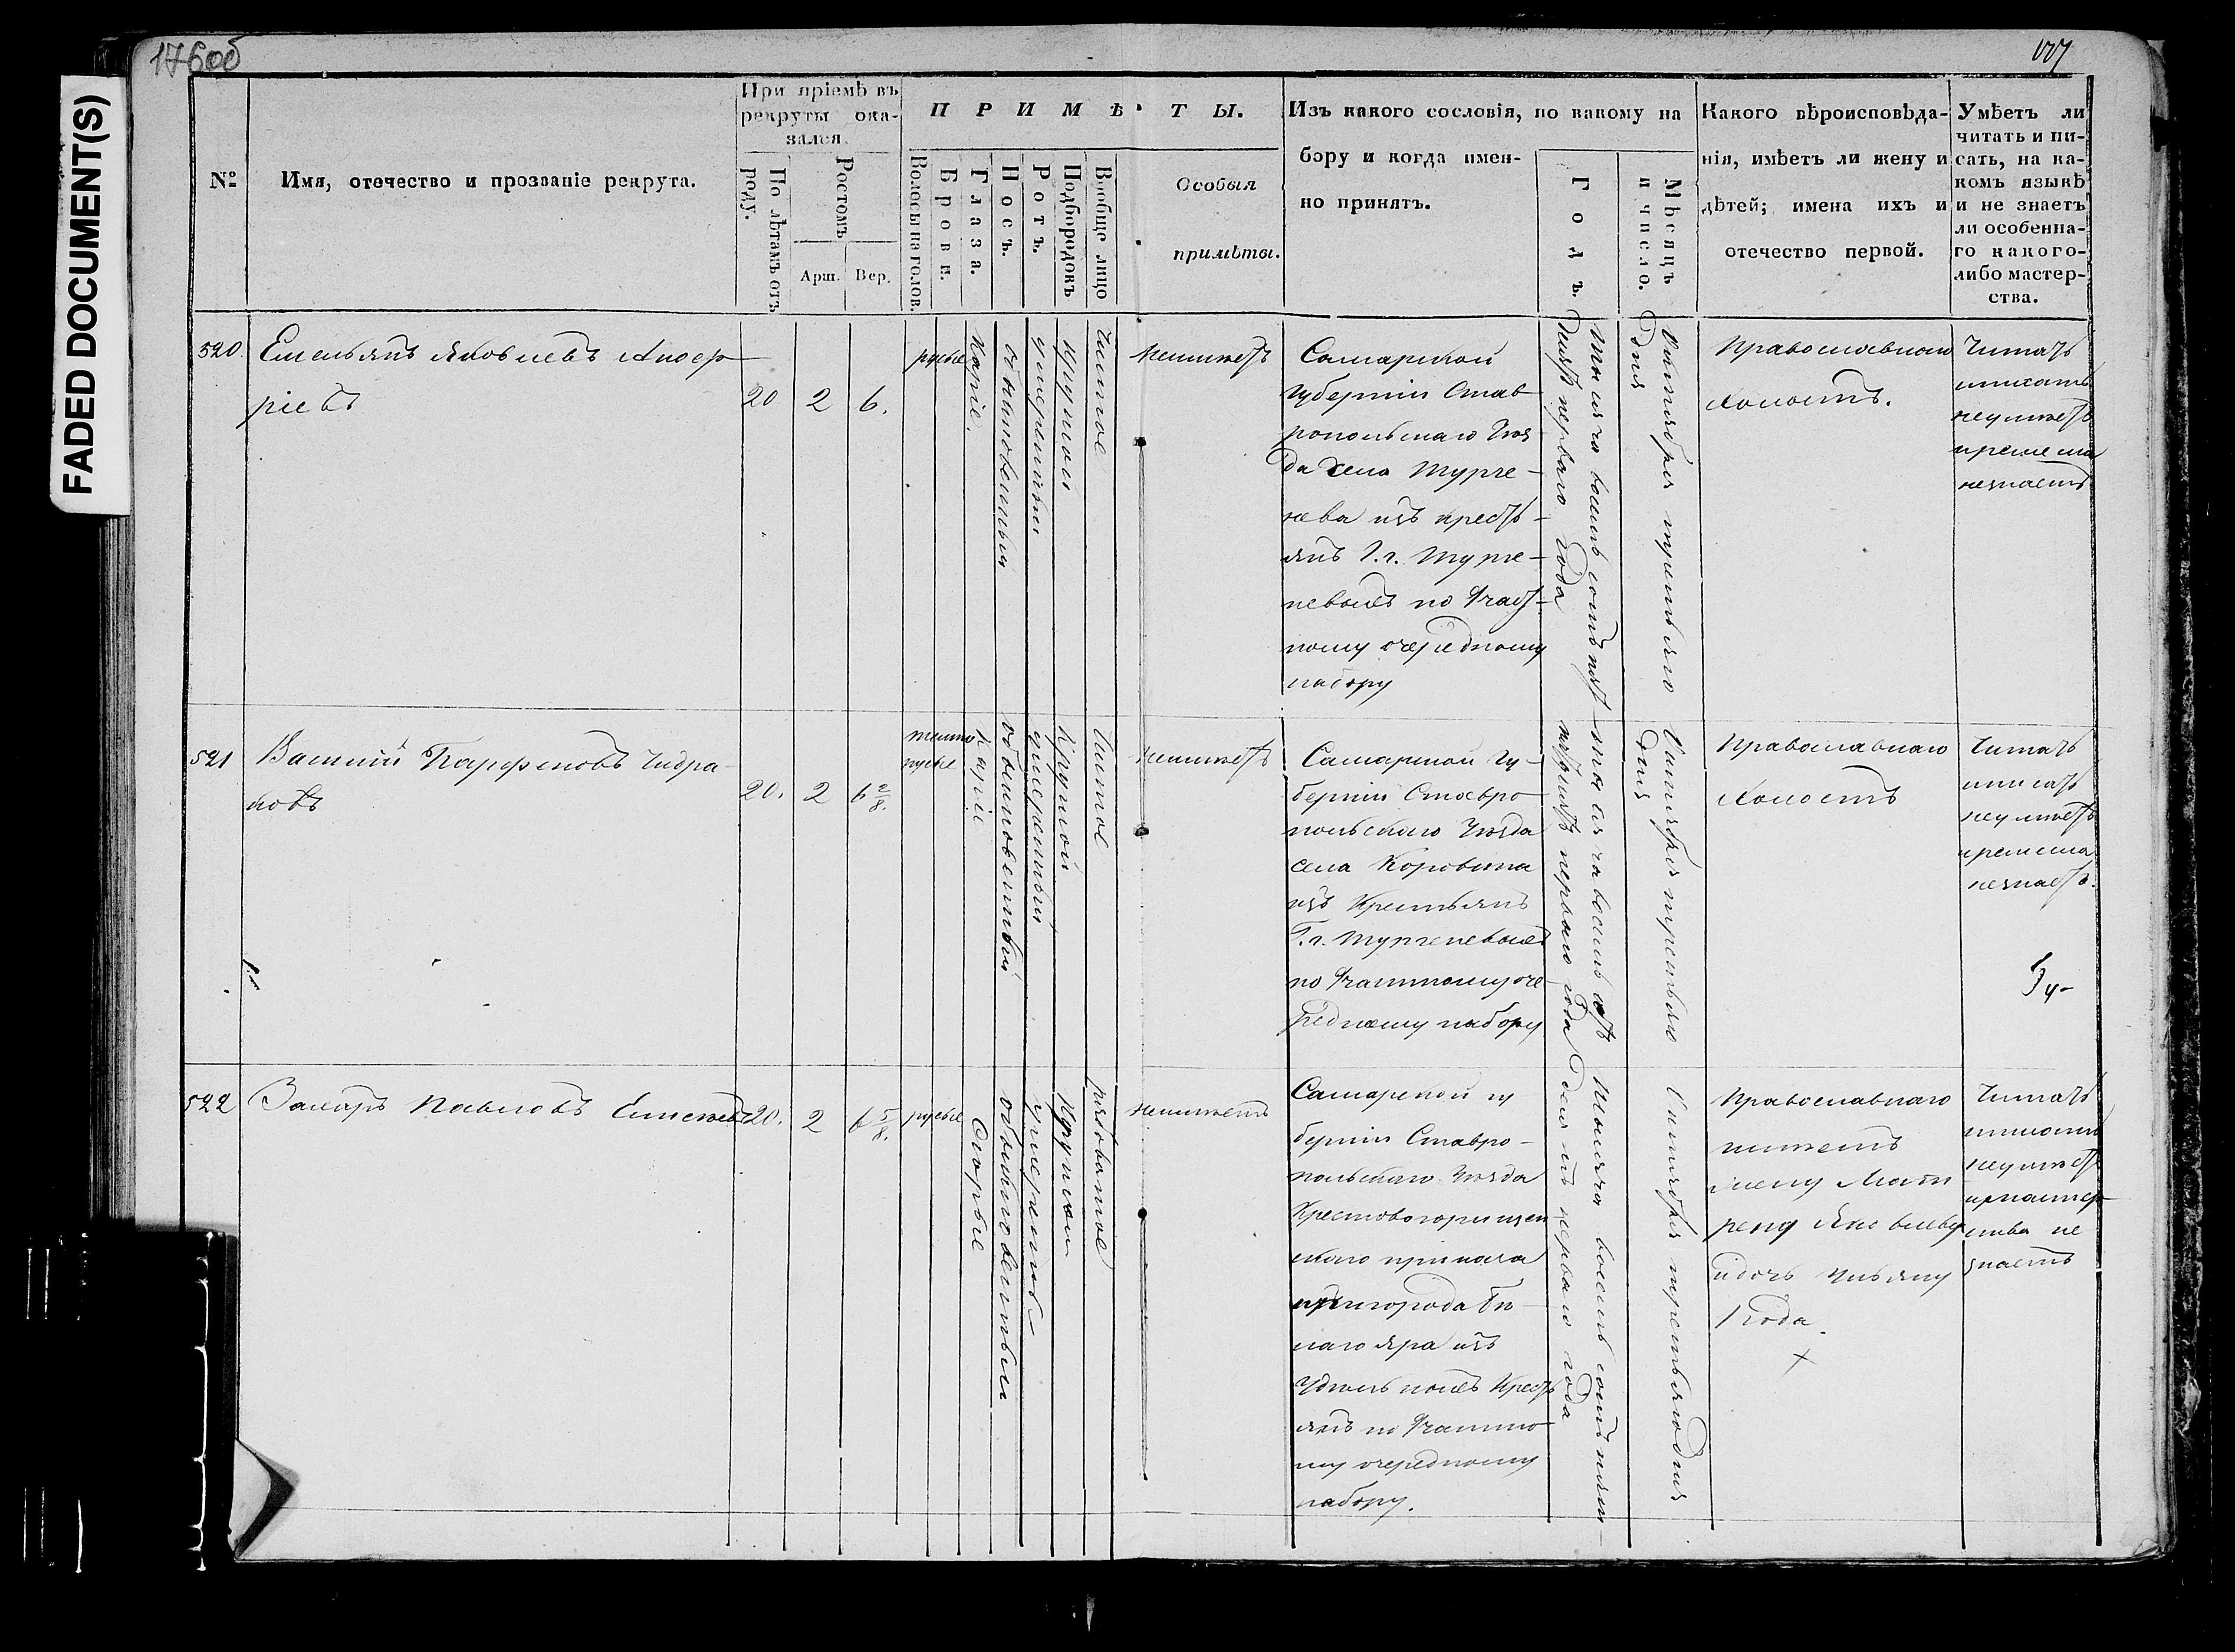 176об
177
FADED DOCUMENT(S)
№
Имя, отечество и прозваніе рекрута.
При пріемѣ въ
рекруты ока-
зался.
По лѣтамъ отъ
роду.
Ростомъ
Арш.
Вер.
ПРИМѢТЫ.
Волосы на голов.
Брови.
Глаза.
Носъ.
Ротъ.
Подбородокъ
Вообще лицо
Особыя
примѣты.
Изъ какого сословія, по какому на
бору и когда имен-
но принятъ.
Годъ.
Мѣсяцъ
и число.
Какого вѣроисповѣда-
нія, имѣетъ ли жену и
дѣтей; имена ихъ и
отечество первой.
Умѣетъ ли
читать и пи-
сать, на ка-
комъ языкѣ
и не знаетъ
ли особенна-
го какого-
либо мастер-
ства.
520.
Емельянъ Яковлевъ
20
2
6.
русые
Каріе
обыкновенный
умеренный
круглой
Чистое
неимѣетъ
Самарской
Губерніи Став
ропольскаго Уѣз
да Села Турге-
нева изъ кресть-
янъ Г.г. Турге-
невыхъ по Част-
ному очередному
набору
Тысяча восемь сотъ пят
десятъ перваго года
Октября третьяго
Дня
Православнаго
Холостъ.
Читать
и писать
неумѣетъ
ремесла
незнаетъ
521
Василій Парфеновъ
20.
2
6 2/8.
темно
русые
Каріе
обыкновенный
умеренный
Круглой
Чистое
Неимѣетъ
Самарской Гу-
берніи Ставро-
польскаго Уѣзда
села Коровина
изъ Крестьянъ
Г.г. Тургеневыхъ
по Частному оче-
редному набору
тысяча восемь сотъ
пятдесятъ перваго года
Октября третьяго
дня
Православнаго
Холостъ
Читать
и писать
неумѣетъ
ремесла
незнаетъ.
522
Захаръ Павловъ
20.
2
6 5/8.
русые
Серые
обыкновенный
умеренной
Круглой
рябоватое
неимѣетъ
Самарской гу
берніи Ставро-
польскаго Уѣзда
Крестовогородищен
скаго приказа
пригорода Бѣ-
лаго Яра изъ
Удѣльныхъ Кресть
янъ по Частно-
му очередному
набору.
Тысяча восемь сотъ пять
десятъ перваго года
Октября третьяго дня
Православнаго
имѣетъ
жену Мат
рену Яковлеву
и дочь Ульяну
1 года.
Читать
и писать
неумѣетъ
и мастер
ства не
знаетъ